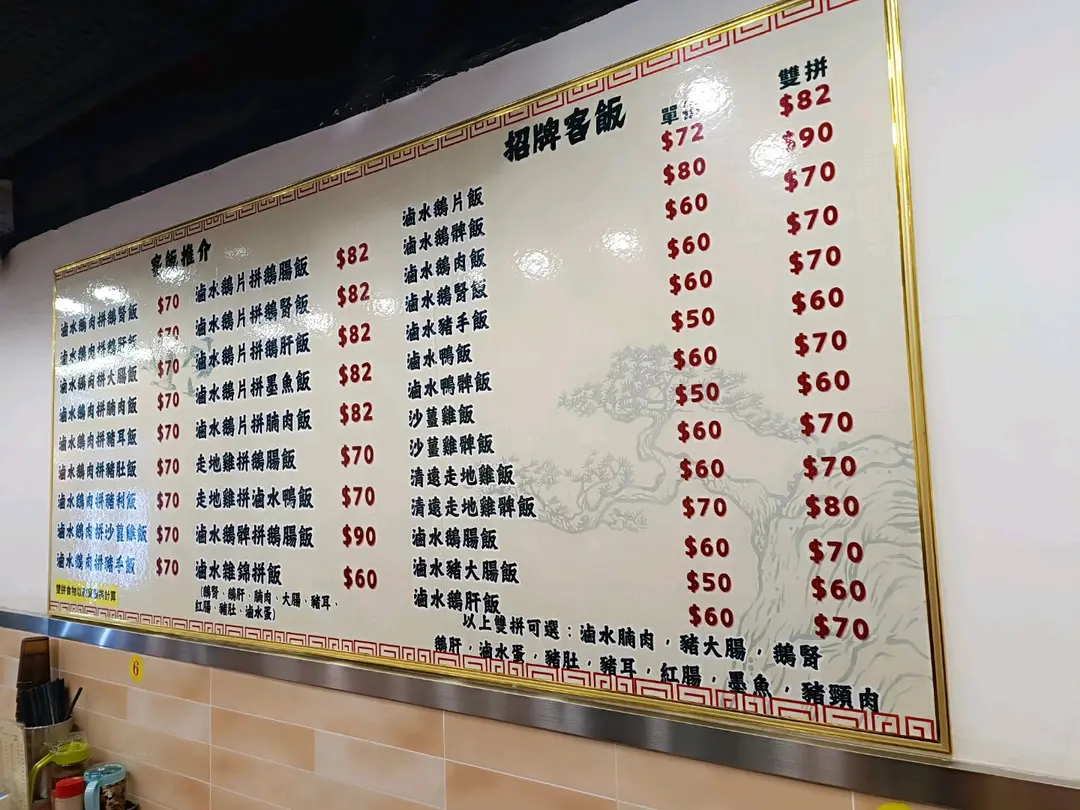 客飯推介
滷水鵝肉拼鵝腎飯 $70
滷水鵝肉拼鵝肝飯 $70
滷水鵝肉拼大腸飯 $70
滷水鵝肉拼腩肉飯 $70
滷水鵝肉拼豬耳飯 $70
滷水鵝肉拼豬肚飯 $70
滷水鵝肉拼豬利飯 $70
滷水鵝肉拼沙薑雞飯 $70
滷水鵝肉拼豬手飯 $70
雙拼食物以 計算
滷水鵝片拼鵝腸飯 $82
滷水鵝片拼鵝腎飯 $82
滷水鵝片拼鵝肝飯 $82
滷水鵝片拼墨魚飯 $82
滷水鵝片拼腩肉飯 $82
走地雞拼鵝腸飯 $70
走地雞拼滷水鴨飯 $70
滷水鵝髀拼鵝腸飯 $90
滷水雜錦拼飯 $60
(鵝腎、鵝肝、腩肉、大腸、豬耳、
紅腸、豬肚、滷水蛋)
招牌客飯 單 雙拼
滷水鵝片飯 $72 $82
滷水鵝髀飯 $80 $90
滷水鵝肉飯 $60 $70
滷水鵝腎飯 $60 $70
滷水豬手飯 $60 $70
滷水鴨飯 $50 $60
滷水鴨髀飯 $60 $70
沙薑雞飯 $50 $60
沙薑雞髀飯 $60 $70
清遠走地雞飯 $60 $70
清遠走地雞髀飯 $70 $80
滷水鵝腸飯 $60 $70
滷水豬大腸飯 $50 $60
滷水鵝肝飯 $60 $70
以上雙拼可選：滷水腩肉，豬大腸，鵝腎
鵝肝，滷水蛋，豬肚，豬耳，紅腸，墨魚，豬頸肉
6